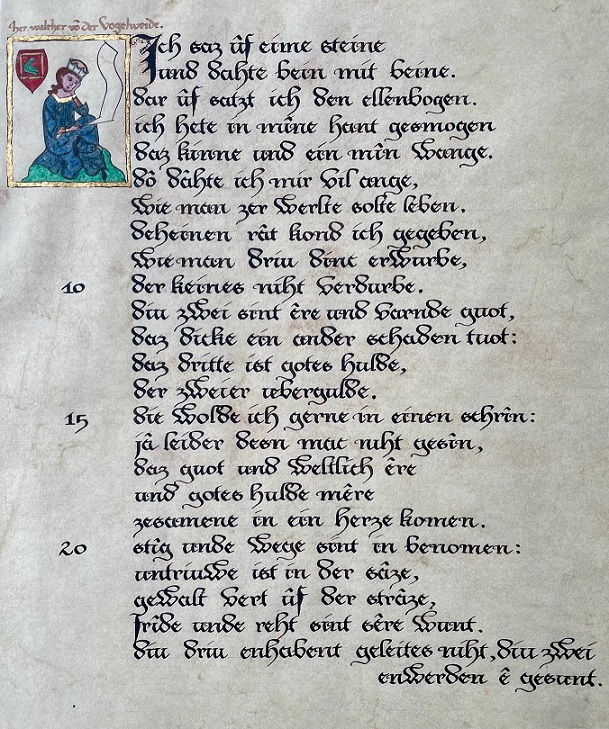 her walther võ der Vogelweide.
Ich saz ûf eime steine
und dahte bein mit beine.
dar ûf satzt ich den ellenbogen.
ich hete in mîne hant gesmogen
daz kinne und ein mîn wange.
dô dâhte ich mir vil ange,
wie man zer werlte solte leben.
deheinen rât kond ich gegeben,
wie man driu dinc erwurbe,
10 der keines niht verdurbe.
diu zwei sint êre und varnde guot,
daz dicke ein ander schaden tuot:
daz dritte ist gotes hulde,
der zweier übergulde.
15 die wolde ich gerne in einen schrîn:
jâ leider desn mac niht gesîn,
daz guot und weltlich êre
und gotes hulde mêre
zesamene in ein herze komen.
20 stîg unde wege sint in benomen:
untriuwe ist in der sâze,
gewalt vert ûf der strâze,
fride unde reht sint sêre wunt.
diu driu enhabent geleites niht, diu zwei
enwerden ê gesunt.